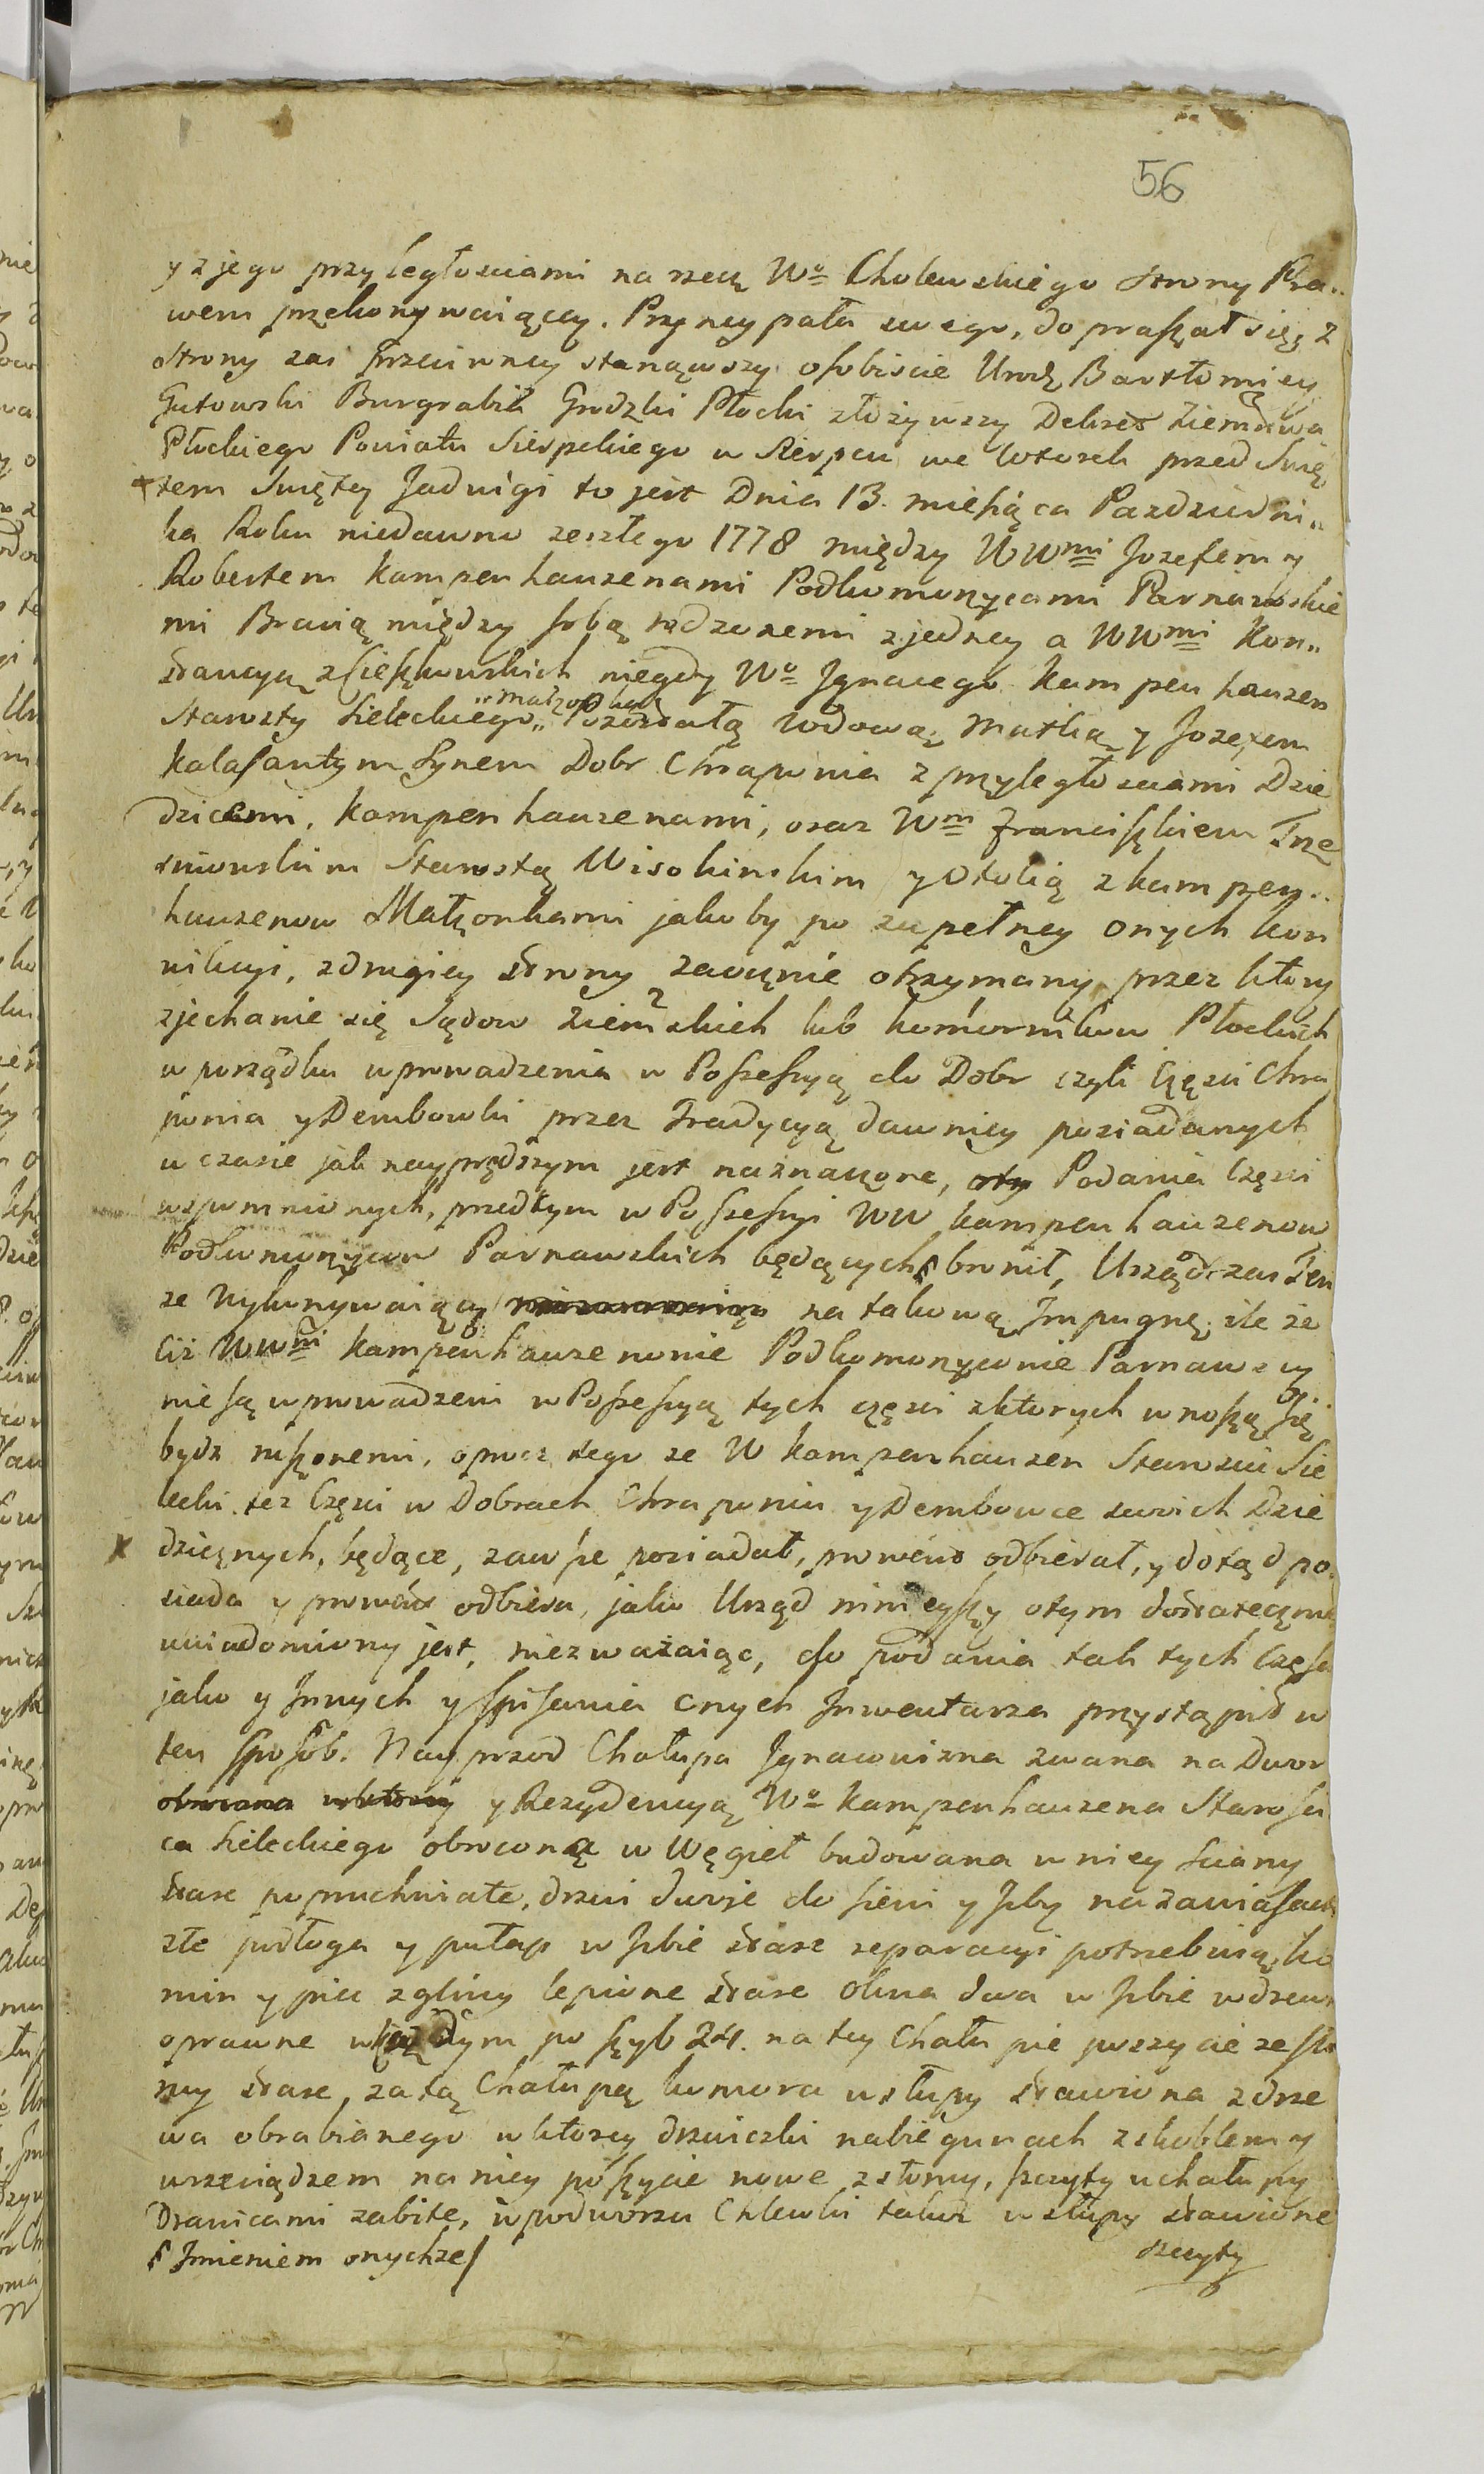 56
y z jego przyległosciami na rzecz Wo Cholewskiego strony Pra„
wem przekonywaiącey. Pryncypała swego, dopraszał się; z
strony zas przeciwney stanąwszy osobiscie Urodz Bartłomiey
Gutowski Burgrabia Grodzki Płocki złożywszy Dekret Ziemstwa
Płockiego Powiatu Sierpskiego w Sierpcu we Wtorek przed Swię
tem Swiętey Jadwigi to jest Dnia 13. miesiąca Pazdzierni„
ka Roku niedawno zeszłego 1778 między WWmi Jozefem y
Robertem Kampenhauzenami Podkomorzycami Parnawskie
mi Bracią między sobą rodzonemi z jedney a WWmi Kon„
stancyą z Cieszkowskich niegdy Wo Ignacego Kampenhauzen
Starosty Sieleckiego „Małzonką„ Pozostałą Wdową Matką y Jozefem
Kalasantym Synem Dobr Chraponia z przyległosciami Dzie
dzicami, Kampenhauzenami, oraz Wm Franciszkiem Trzc
sniewskim Starostą Wisokinskim y Otolią z Kampen„
hauzenow Małzonkami jakoby po zupełney onych kon
nikcyi, z drugiey strony zaocznie otrzymany, przez ktory
zjechanie się Sądow Ziemskich lub komornikow Płockich
w porządku wprowadzenia w Possessyą do Dobr czyli Części Chra
ponia y Dembowki przez Tradycyą dawniey posiadanych
w czasie jak nayprędszym jest naznaczone, Podania Części
wspomnionych, przedtym w Possessyi WW Kampenhauzenow
Podkomorzycow Parnawskich będących bronił, Urząd zas Ten
ze Wykonywaiący na takową Impugnę, ile ze
Ciz WWmi Kampenhauzenowie Podkomorzycowie Parnawscy
nie są wprowadzeni w Possessyą tych części z ktorych wnoszą się
bydz ruszonemi, oprocz tego ze W Kampenhauzen Starosci Sie
lecki tez Części w Dobrach Chraponiu y Dembowce swoich Dzie
dzicznych, będące, zawsze posiadał, prowent odbierał, y dotąd po„
siada y prowent odbiera, jako Urząd ninieyszy o tym dostatecznie
uwiadomiony jest, niezważaiąc, do podania tak tych Części
jako y Innych y spisania onych Inwentarza przystąpił w
ten sposob. Nayprzod Chałupa Ignacowizna zwana na Dwor
y Rezydencyą Wo Kampenhauzena Starosci
ca Sieleckiego obroconą w Węgieł budowana w niey sciany
stare poprochniałe, drzwi dwoje do sieni y Izby na zawiasach
złe podłoga y pułap w Izbie stare reparacyi potrzebuią, ko
min y piec z gliny lepione stare Okna dwa w Izbie w drewno
oprawne w kazdym po szyb 24. na tey Chałupie poszycie ze sło
my stare, za tą Chałupą komora w słupy stawiona z drze
wa obrabianego w ktorey drzwiczki na biegunach z skoblem y
wrzeciądzem na niey poszycie nowe z słomy, szczyty u chałupy
Dranicami zabite, w podworzu Chlewki takze w słupy stawione
Imieniem onychze
szczyty